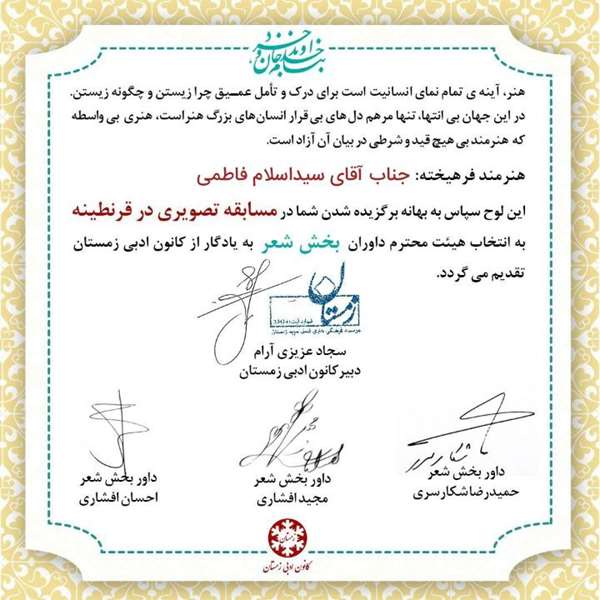 به نام خداوند جان و خرد
هنر، آینه ی تمام نمای انسانیت است برای درک و تأمل عمـیق چرا زیستن و چگونه زیستن.
در این جهان بی انتها، تنها مرهم دل های بی قرار انسان‌های بزرگ هنراست، هنری بی واسطه
که هنرمند بی هیچ قید و شرطی در بیان آن آزاد است.
هنرمند فرهیخته: جناب آقای سیداسلام فاطمی
این لوح سپاس به بهانه برگزیده شدن شما در مسابقه تصویری در قرنطینه
به انتخاب هیئت محترم داوران بخش شعر به یادگار از کانون ادبی زمستان
تقدیم می گردد.
زمستان
سجاد عزیزی آرام
دبیر کانون ادبی زمستان
داور بخش شعر
حمیدرضا شکارسری
داور بخش شعر
مجید افشاری
داور بخش شعر
احسان افشاری
زمستان
کانون ادبی زمستان